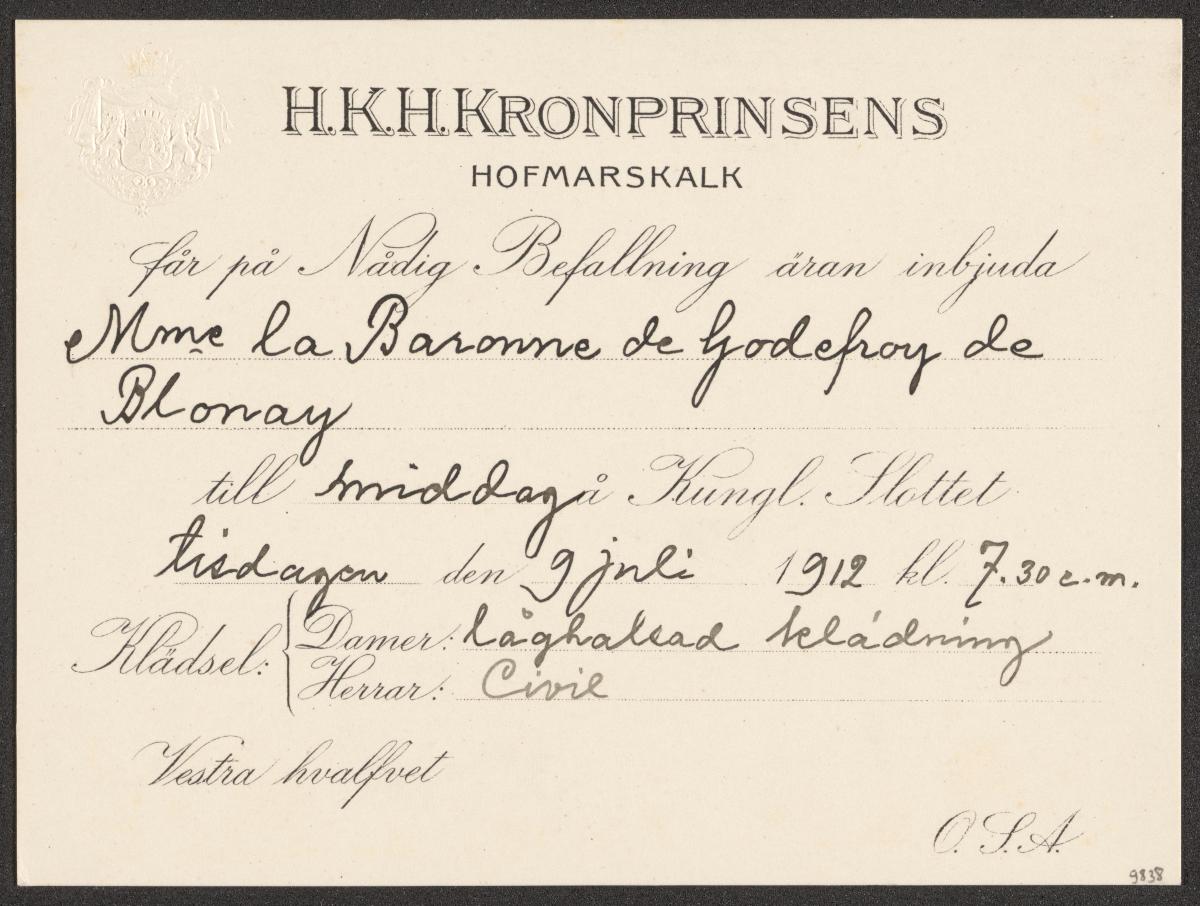 H.K.H. KRONPRINSENS
HOFMARSKALK
får på Nådig Befallning äran inbjuda
Mme la Baronne de Godefroy de
Blonay
till middag å Kungl. Slottet
tisdagen den 9 juli 1912 kl. 7.30 e.m.
Klädsel: { Damer: låghalsad klädning
Herrar: Civil
Vestra hvalfvet
O.S.A.
9838